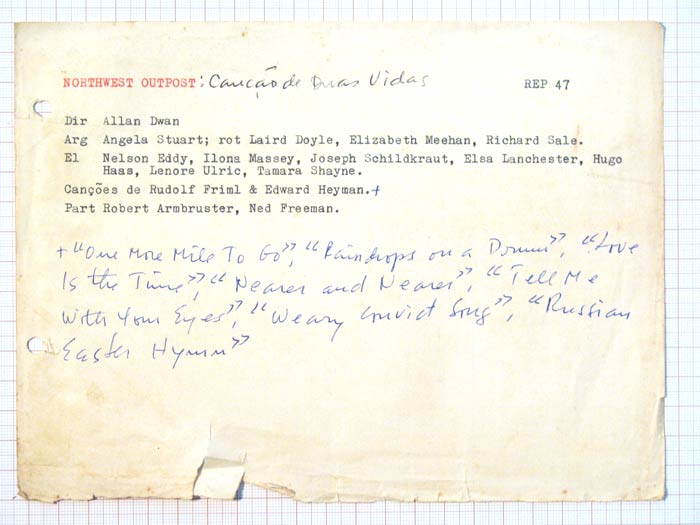 NORTHWEST OUTPOST: Canção de Duas Vidas REP 47
Dir Allan Dwan
Arg Angela Stuart; rot Laird Doyle, Elizabeth Meehan, Richard Sale.
El Nelson Eddy, Ilona Massey, Joseph Schildkraut, Elsa Lanchester, Hugo
Haas, Lenore Ulric, Tamara Shayne.
Canções de Rudolf Friml & Edward Heyman.+
Part Robert Armbruster, Ned Freeman.
+ "One More Mile To Go", "Raindrops on a Drum", "Love
Is the Time", "Nearer and Nearer", "Tell Me
With Your Eyes", "Weary Convict Song", "Russian
Easter Hymn"